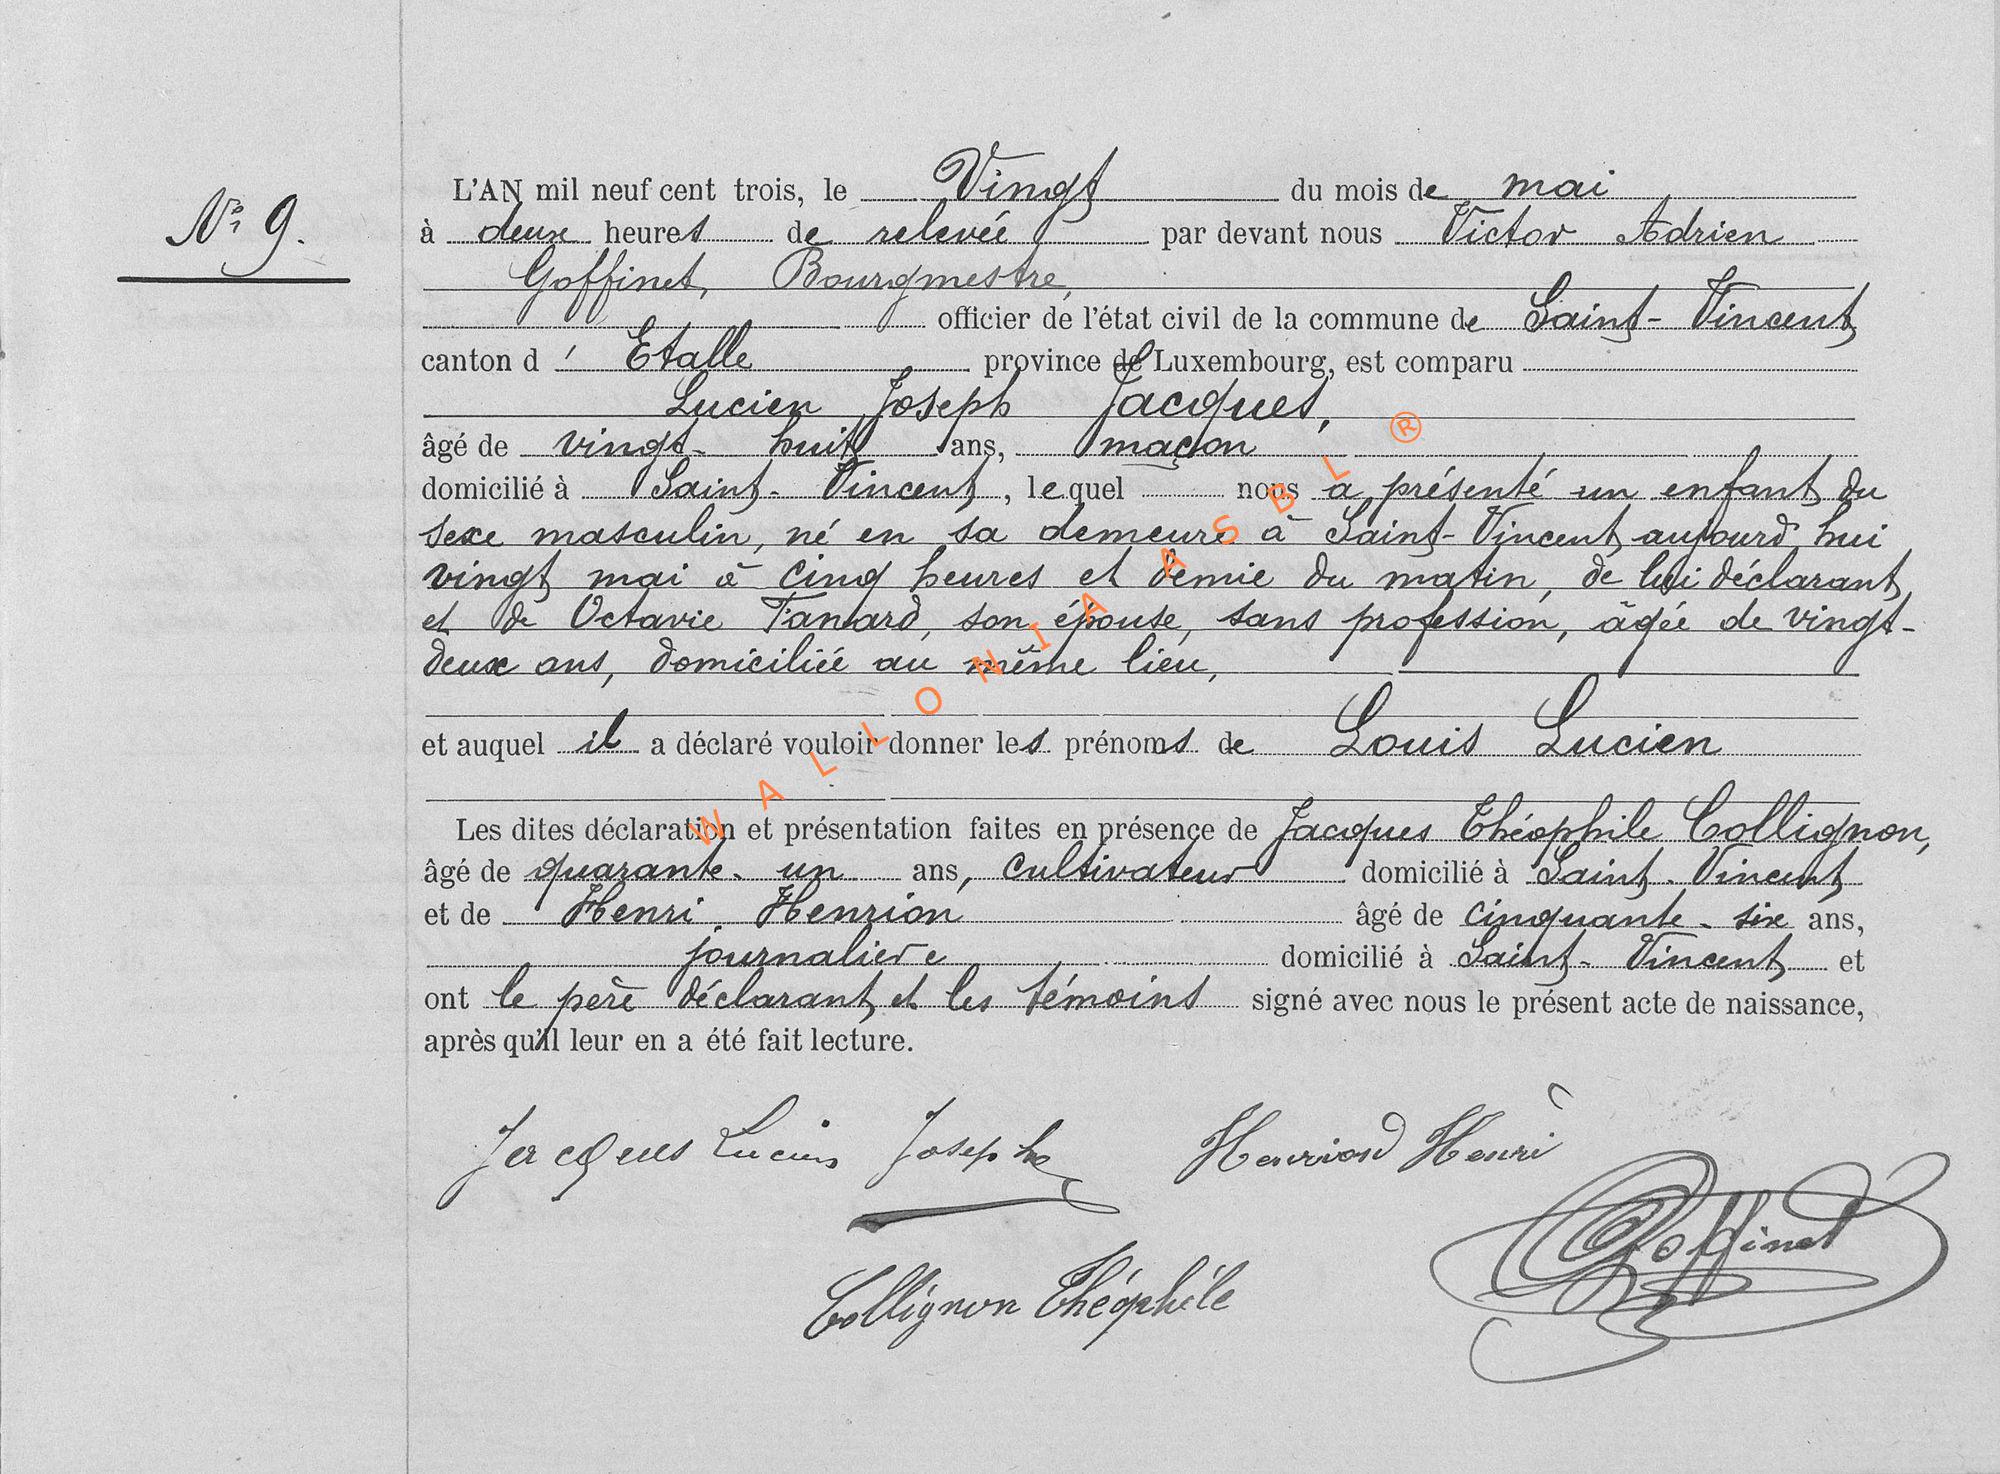 N° 9.
L'AN mil neuf cent trois, le Vingt du mois de mai
à deux heures de relevée par devant nous Victor Adrien
Goffinet, Bourgmestre,
officier de l'état civil de la commune de Saint-Vincent
canton d' Etalle province de Luxembourg, est comparu
Lucien Joseph Jacques,
âgé de vingt-huit ans, maçon
domicilié à Saint-Vincent, lequel nous a présenté un enfant du
sexe masculin, né en sa demeure à Saint-Vincent aujourd'hui
vingt mai à cinq heures et demie du matin, de lui déclarant
et de Octavie Tanard, son épouse, sans profession, âgée de vingt-
deux ans, domiciliée au même lieu,
et auquel il a déclaré vouloir donner les prénoms de Louis Lucien
Les dites déclaration et présentation faites en présence de Jacques Théophile Collignon,
âgé de quarante-un ans, cultivateur domicilié à Saint-Vincent
et de Henri Henrion âgé de cinquante-six ans,
journalier domicilié à Saint-Vincent et
ont le père déclarant et les témoins signé avec nous le présent acte de naissance,
après qu'il leur en a été fait lecture.
Jacques Lucien Joseph Henriond Henri
Goffinet
Collignon Théophile
WALLONIA ASBL ®